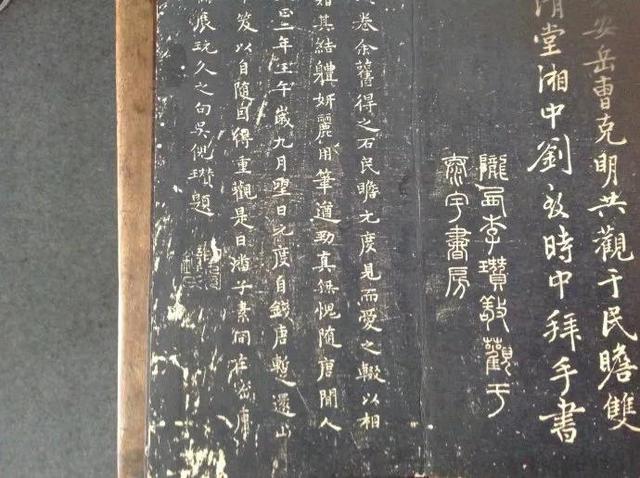 安岳曹克明共觀于民瞻雙
清堂湘中劉 時中拜手書
隴西李瓚敬觀于
齋宇書房
卷余舊得之石民瞻尤度見而愛之輙以相
其結軆妍麗用筆遒勁真無愧隨唐間人
正二年壬午歲九月望日元度自錢唐暫還山
笈以自隨因得重觀是日 子素同在
展玩久之句吳倪瓚題